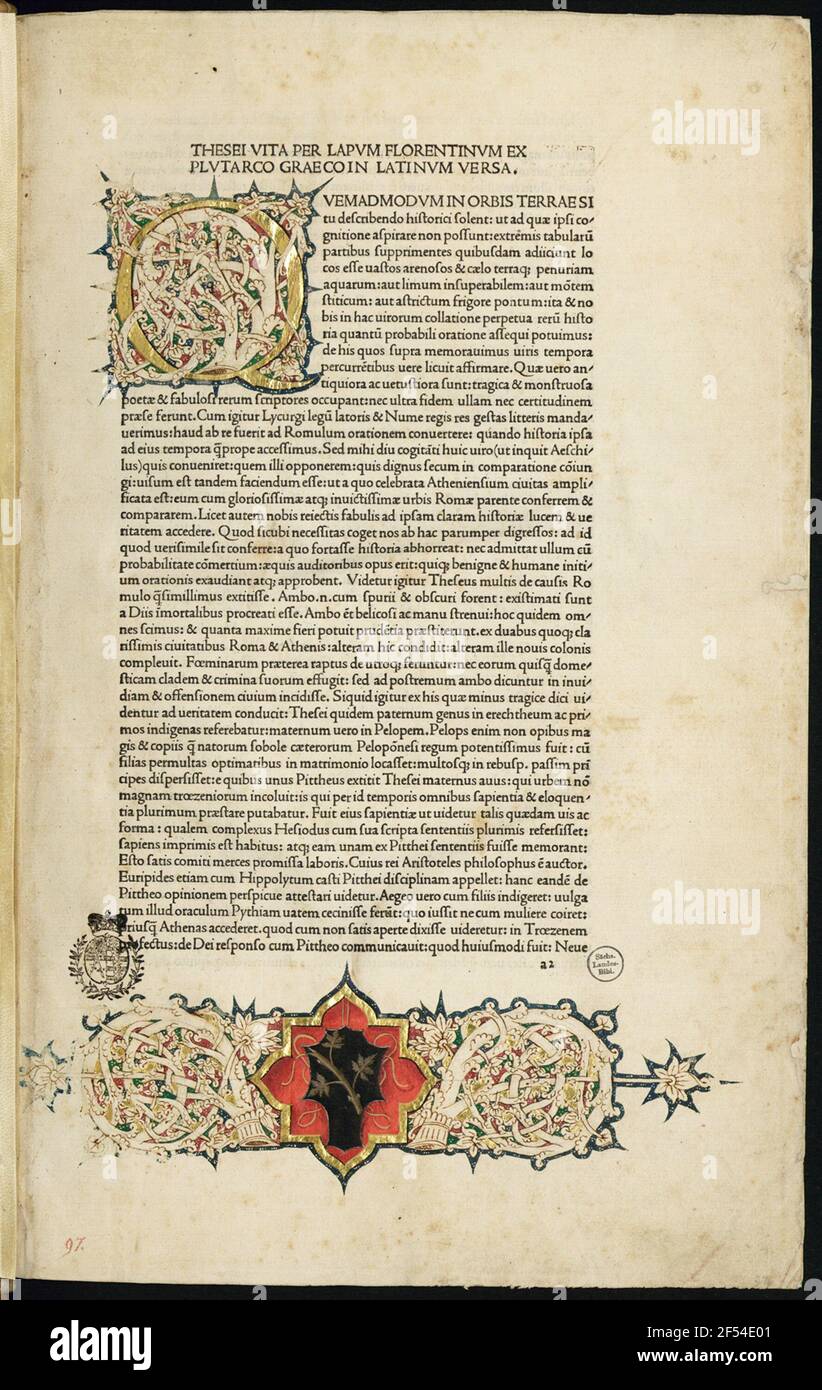 THESEI VITA PER LAPVM FLORENTINVM EX
PLVTARCO GRAECO IN LATINVM VERSA.
QVEMADMODVM IN ORBIS TERRAE SI
tu deſcribendo hiſtorici ſolent: ut ad quæ ipſi co⸗
gnitione aſpirare non poſſunt: extrêmis tabularũ
partibus ſupprimentes quibuſdam adiiciunt lo
cos eſſe uaſtos arenoſos & cælo terraq; penuriam
aquarum: aut limum inſuperabilem: aut mõtem
ſtiticum: aut aſtrictum frigore pontum: ita & no
bis in hac uirorum collatione perpetua rerũ hiſto
ria quantũ probabili oratione aſſequi potuimus:
de his quos ſupra memorauimus uiris tempora
percurrẽtibus uere licuit affirmare. Quæ uero an⸗
tiquiora ac uetuſtiora ſunt: tragica & monſtruoſa
poetæ & fabuloſi rerum ſcriptores occupant: nec ultra fidem ullam nec certitudinem
præſe ferunt. Cum igitur Lycurgi legũ latoris & Nume regis res geſtas litteris manda⸗
uerimus: haud ab re fuerit ad Romulum orationem conuertere: quando hiſtoria ipſa
ad eius tempora q̃prope acceſſimus. Sed mihi diu cogitãti huic uiro (ut inquit Aeſchi⸗
lus) quis conueniret: quem illi opponerem: quis dignus ſecum in comparatione cõiun
gi: uiſum eſt tandem faciendum eſſe: ut a quo celebrata Athenienſium ciuitas ampli⸗
ficata eſt: eum cum glorioſiſſimæ atq; inuictiſſimæ urbis Romæ parente conferrem &
compararem. Licet autem nobis reiectis fabulis ad ipſam claram hiſtoriæ lucem & ue
ritatem accedere. Quod ſicubi neceſſitas coget nos ab hac parumper digreſſos: ad id
quod ueriſimile ſit conferre: a quo fortaſſe hiſtoria abhorreat: nec admittat ullum cũ
probabilitate cõmertium: æquis auditoribus opus erit: quiq; benigne & humane initi⸗
um orationis exaudiant atq; approbent. Videtur igitur Theſeus multis de cauſis Ro
mulo q̃ſimillimus extitiſſe. Ambo .n. cum ſpurii & obſcuri forent: exiſtimati ſunt
a Diis ĩmortalibus procreati eſſe. Ambo ẽt belicoſi ac manu ſtrenui: hoc quidem om⸗
nes ſcimus: & quanta maxime fieri potuit prudẽtia præſtiterunt. ex duabus quoq; cla
riſſimis ciuitatibus Roma & Athenis: alteram hic condidit: alteram ille nouis colonis
compleuit. Fœminarum præterea raptus de utroq; feruntur: nec eorum quiſq̃ dome⸗
ſticam cladem & crimina ſuorum effugit: ſed ad poſtremum ambo dicuntur in inui⸗
diam & offenſionem ciuium incidiſſe. Siquid igitur ex his quæ minus tragice dici ui⸗
dentur ad ueritatem conducit: Theſei quidem paternum genus in erechtheum ac pri⸗
mos indigenas referebatur: maternum uero in Pelopem. Pelops enim non opibus ma
gis & copiis q̃ natorum ſobole cæterorum Pelopõneſi regum potentiſſimus fuit: cũ
filias permultas optimatibus in matrimonio locaſſet: multoſq; in rebuſp. paſſim prĩ
cipes diſperſiſſet: e quibus unus Pittheus extitit Theſei maternus auus: qui urbem nõ
magnam trœzeniorum incoluit: is qui per id temporis omnibus ſapientia & eloquen⸗
tia plurimum præſtare putabatur. Fuit eius ſapientiæ ut uidetur talis quædam uis ac
forma: qualem complexus Heſiodus cum ſua ſcripta ſententiis plurimis referſiſſet:
ſapiens imprimis eſt habitus: atq; eam unam ex Pitthei ſententiis fuiſſe memorant:
Eſto ſatis comiti merces promiſſa laboris. Cuius rei Ariſtoteles philoſophus ẽ auctor.
Euripides etiam cum Hippolytum caſti Pitthei diſciplinam appellet: hanc eandẽ de
Pittheo opinionem perſpicue atteſtari uidetur. Aegeo uero cum filiis indigeret: uulga
tum illud oraculum Pythiam uatem ceciniſſe ferũt: quo iuſſit ne cum muliere coiret:
priuſq̃ Athenas accederet. quod cum non ſatis aperte dixiſſe uideretur: in Trœzenem
profectus: de Dei reſponſo cum Pittheo communicauit: quod huiuſmodi fuit: Neue
a2
Sächs.
Landes-
Bibl.
97.
alamy
Image ID: 2F54E01
www.alamy.com